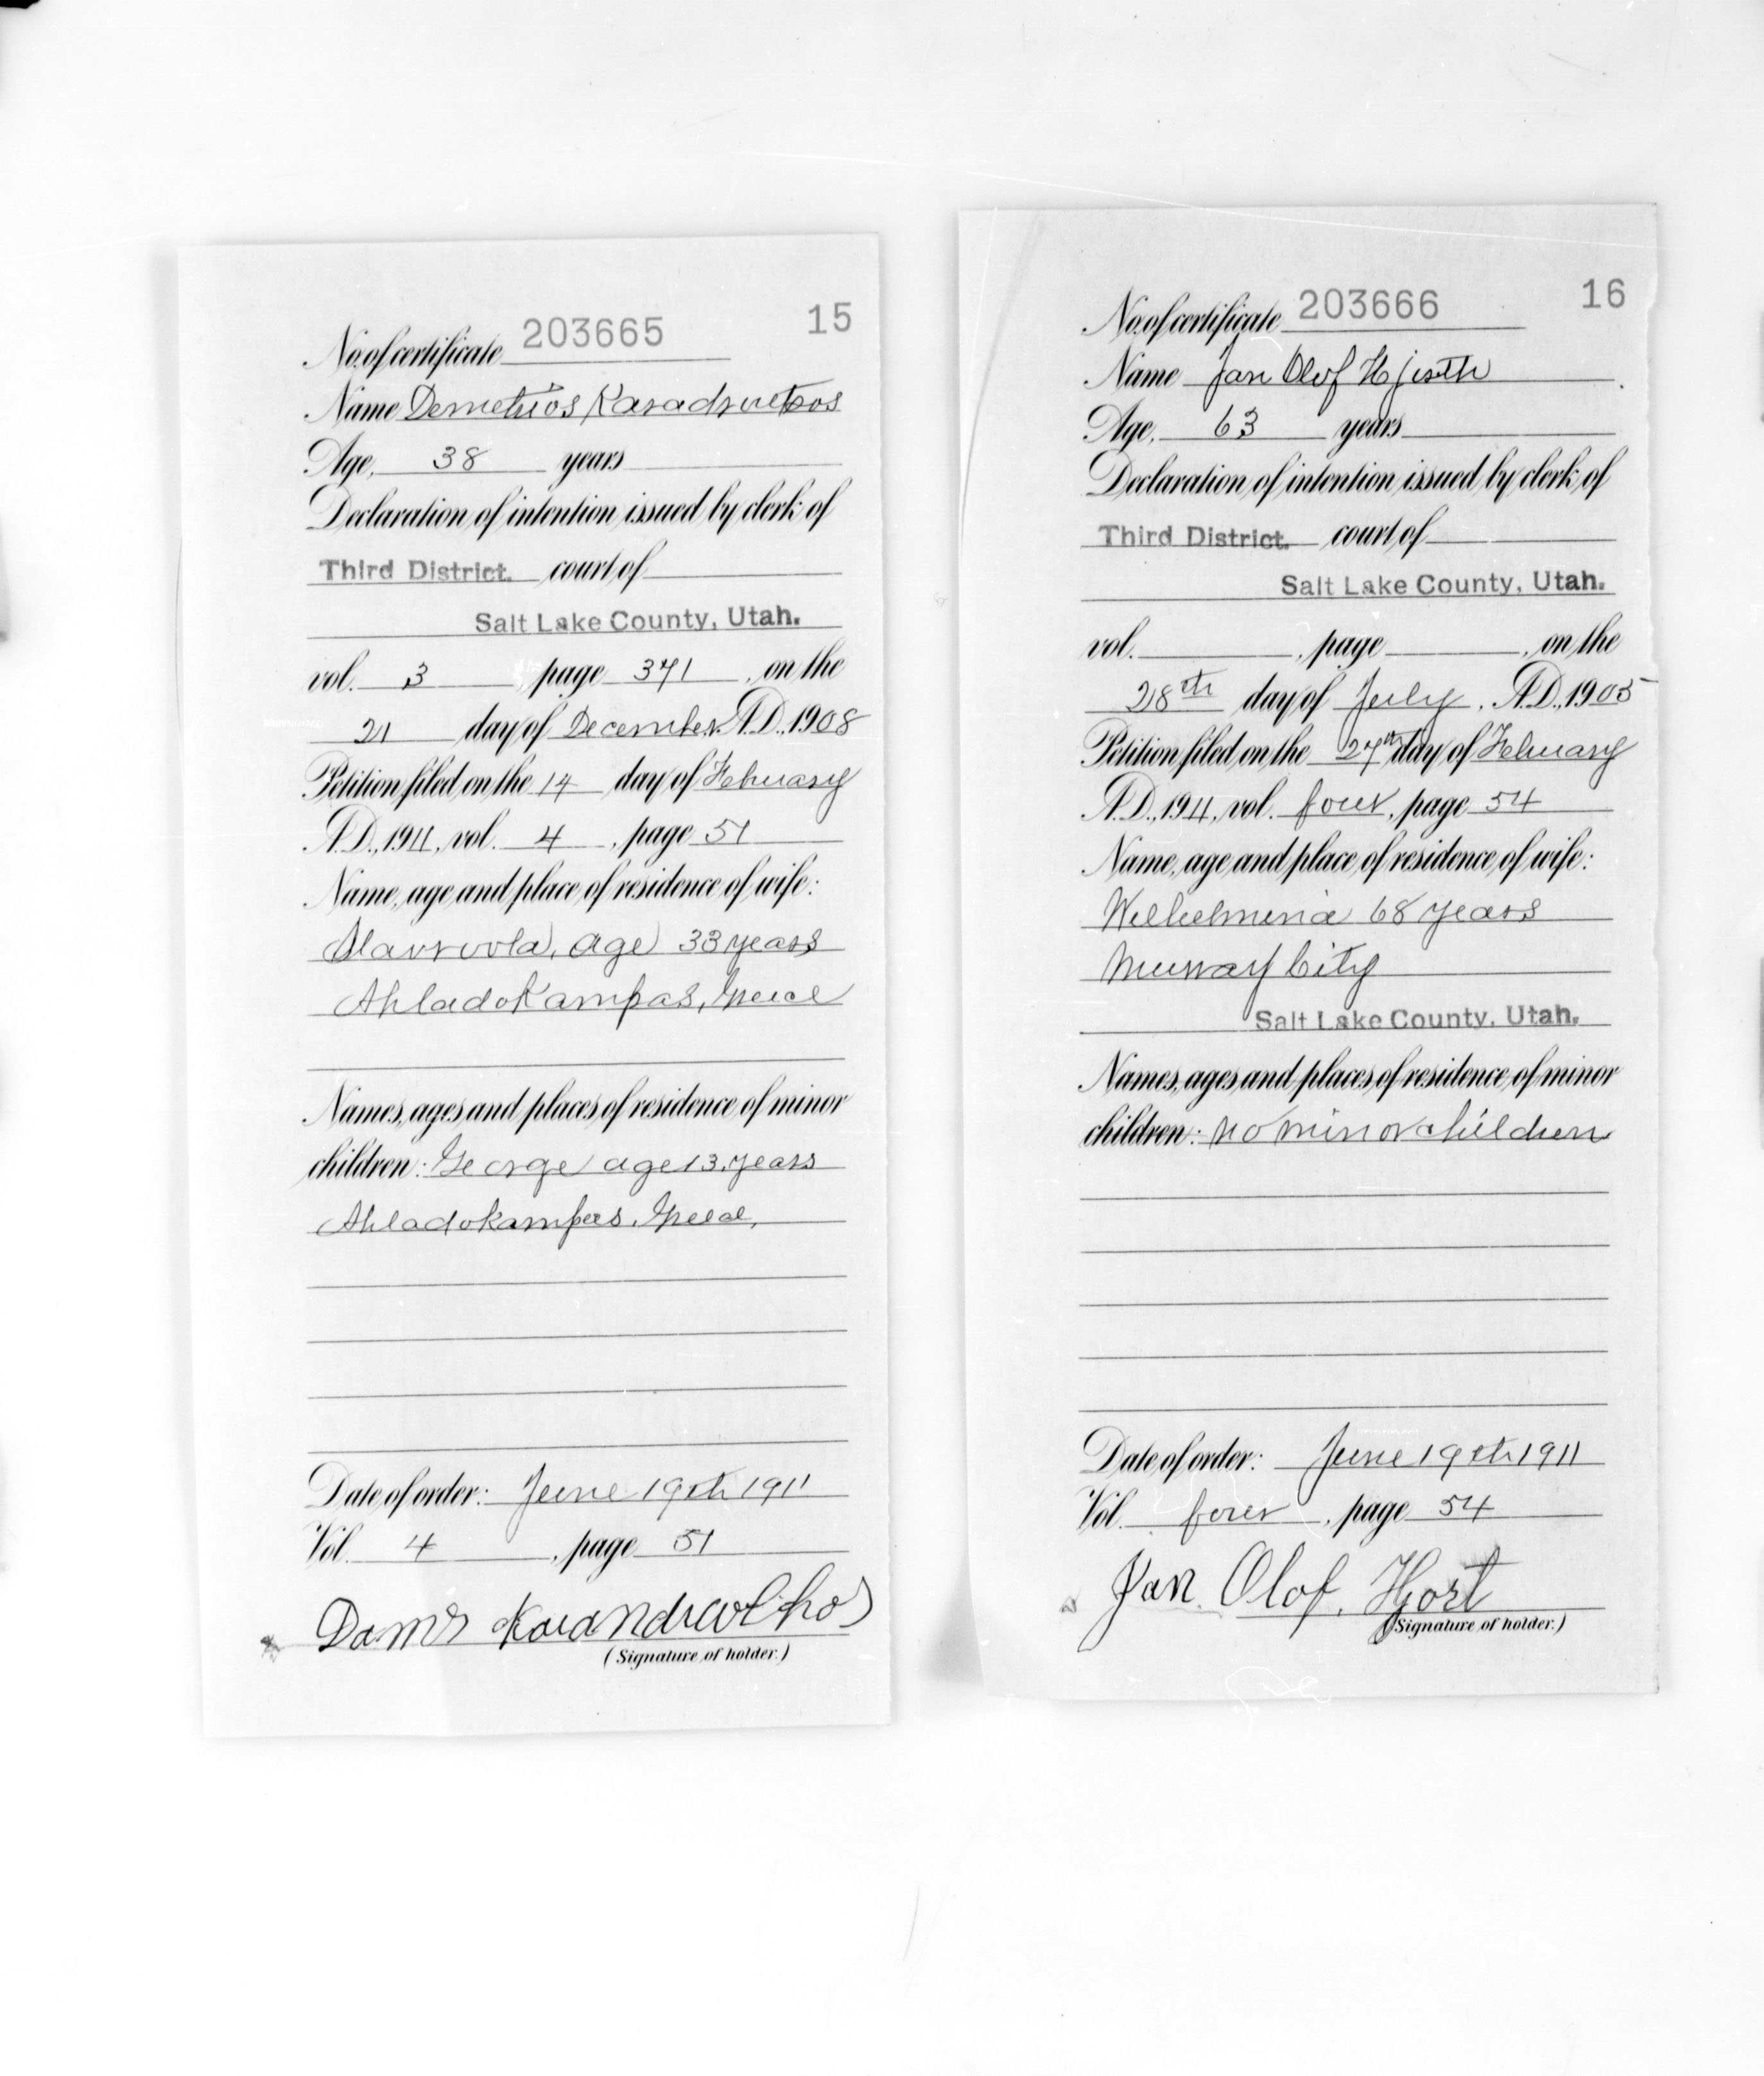 15
No. of certificate 203665
Name Demetrios
Age, 38 years
Declaration of intention issued by clerk of
Third District. court of
Salt Lake County, Utah.
vol. 3, page 371, on the
21 day of December A.D., 1908
Petition filed on the 14 day of February
A.D., 1911, vol. 4, page 51
Name, age and place of residence of wife:
age 33 years
Ahladokampas, Greece
Names, ages and places of residence of minor
children: George age 13 years
Ahladokampas, Greece,
Date of order: June 19th 1911
Vol. 4, page 51
(Signature of holder.)
16
No. of certificate 203666
Name Jan Olof Hjorth
Age, 63 years
Declaration of intention issued by clerk of
Third District. court of
Salt Lake County, Utah.
vol. , page , on the
28th day of July, A.D., 1905
Petition filed on the 27th day of February
A.D., 1911, vol. four, page 54
Name, age and place of residence of wife:
Wilhelmina 68 years
Murray City
Salt Lake County, Utah.
Names, ages and places of residence of minor
children: no minor children
Date of order: June 19th 1911
Vol. four, page 54
Jan Olof. Hjort
(Signature of holder.)